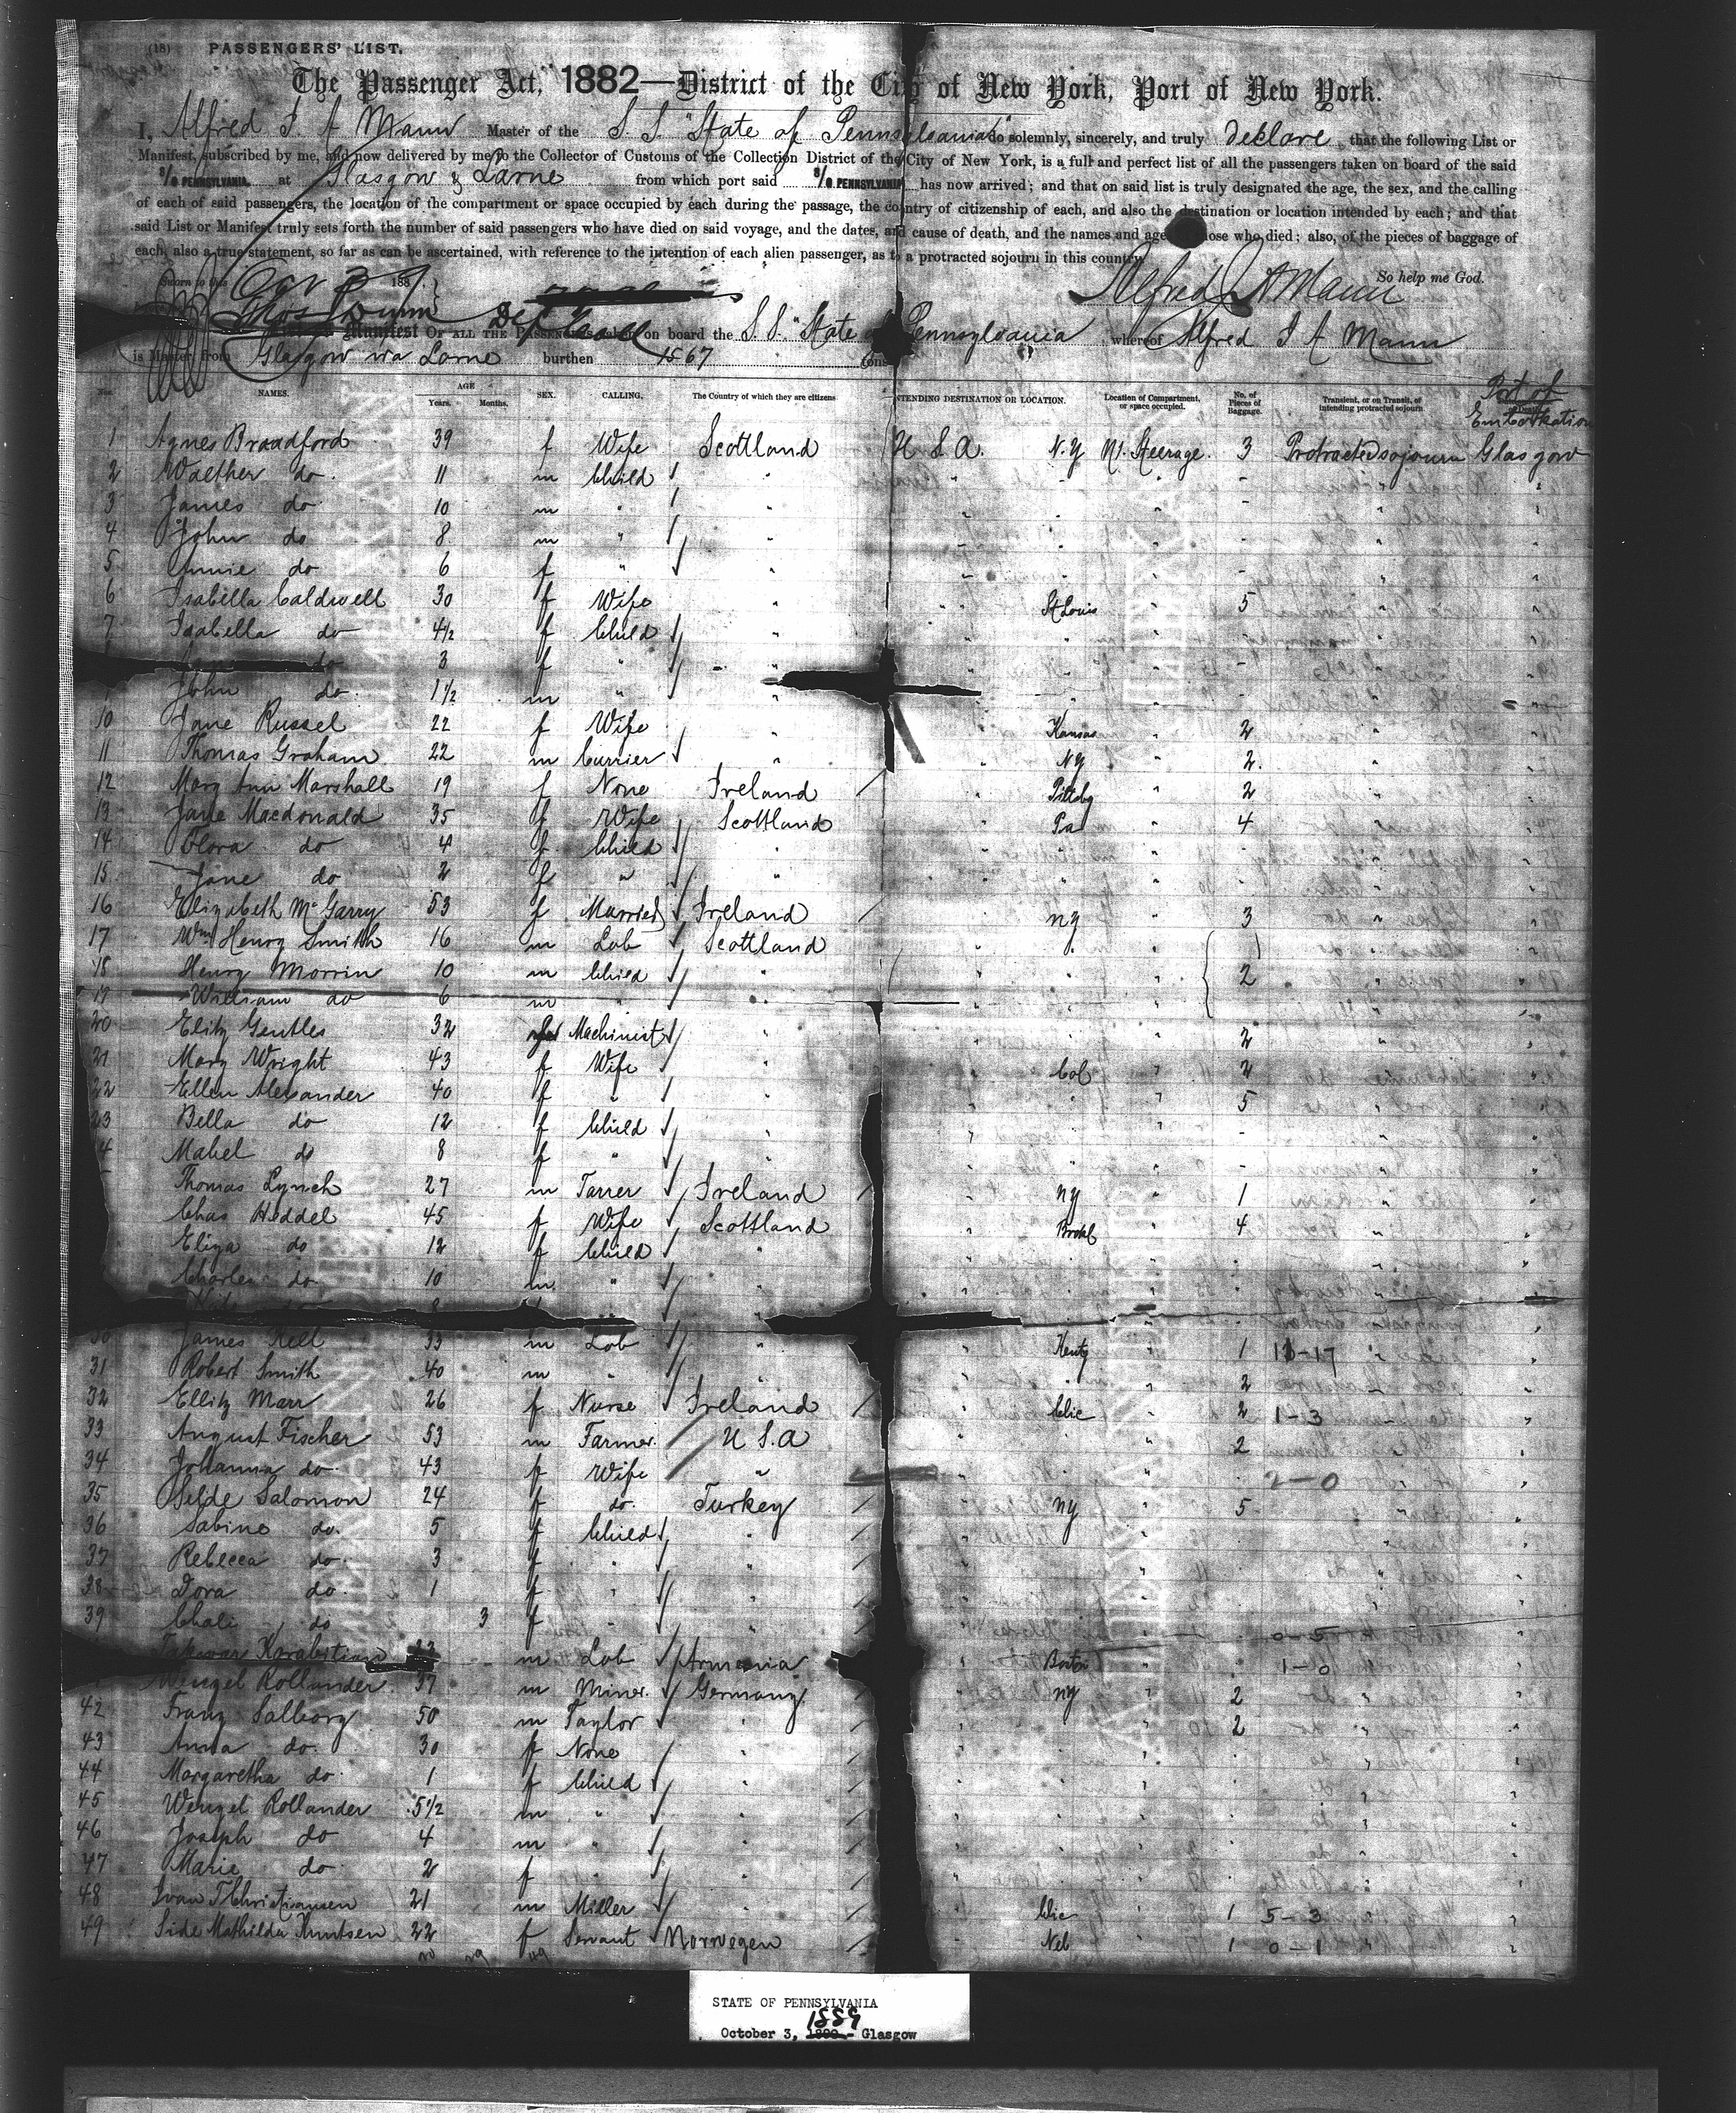 (18) PASSENGERS' LIST.
The Passenger Act, 1882—District of the City of New York, Port of New York.
I, Alfred J. A Mann Master of the S. S. "State of Pennsylvania" do solemnly, sincerely, and truly declare that the following List or
Manifest, subscribed by me, and now delivered by me to the Collector of Customs of the Collection District of the City of New York, is a full and perfect list of all the passengers taken on board of the said
S/O PENNSYLVANIA. at Glasgow & Larne from which port said S/O PENNSYLVANIA has now arrived; and that on said list is truly designated the age, the sex, and the calling
of each of said passengers, the location of the compartment or space occupied by each during the passage, the country of citizenship of each, and also the destination or location intended by each; and that
said List or Manifest truly sets forth the number of said passengers who have died on said voyage, and the dates, and cause of death, and the names and age those who died; also, of the pieces of baggage of
each, also a true statement, so far as can be ascertained, with reference to the intention of each alien passenger, as to a protracted sojourn in this country
So help me God.
Sworn to this Oct 3 1889
Alfred J A Mann
Thos Dunn
Dep Coll
Manifest OF ALL THE PASSENGERS on board the S. S. "State of Pennsylvania whereof Alfred J A Mann
is Master, from Glasgow via Larne burthen 1567
Nos. NAMES. AGE Years. Months. SEX. CALLING. The Country of which they are citizens INTENDING DESTINATION OR LOCATION. Location of Compartment, or space occupied. No. of Pieces of Baggage. Transient, or on Transit, or intending protracted sojourn Port of Embarkation
1 Agnes Broadford 39 f Wife Scottland U S A. N.Y N1. Steerage. 3 Protracted sojourn Glasgow
2 Walther do. 11 m Child " " " " - " "
3 James do 10 m " " " " " - " "
4 John do 8 m " " " " " - " "
5 Annie do 6 f " " " " " - " "
6 Isabella Caldwell 30 f Wife " " St Louis " 5 " "
7 Isabella do 4½ f Child " " " " - " "
do 3 f " " " " " - " "
John do. 1½ m " " " " " - " "
10 Jane Russel 22 f Wife " " Kansas " 2 " "
11 Thomas Graham 22 m Currier " " NY " 2. " "
12 Mary Ann Marshall 19 f None Ireland " Pittsbg " 2 " "
13 Jane Macdonald 35 f Wife Scottland " Pa " 4 " "
14 Clara do 4 f Child " " " " - " "
15 Jane do 2 f " " " " " - " "
16 Elizabeth McGarry 53 f Married Ireland " NY " 3 " "
17 Wm Henry Smith 16 m Lab Scottland " " " " "
18 Henry Morrin 10 m Child " " " " 2 " "
19 William do 6 m " " " " " " "
20 Elitz Gentles 32 f Machinist " " " " 2 " "
21 Mary Wright 43 f Wife " " Col " 2 " "
22 Ellen Alexander 40 f " " " " " 5 " "
23 Bella do 12 f Child " " " " - " "
4 Mabel do 8 f " " " " " - " "
Thomas Lynch 27 m Tarrer Ireland " NY " 1 " "
Chas Heddel 45 f Wife Scottland " Brookl " 4 " "
Eliza do 12 f Child " " " " " "
Charles do. 10 m. " " " " " " "
8
30 James Kell 33 m Lab " " Kenty " 1 11-17 "
31 Robert Smith 40 m " " " " " 2 " "
32 Ellitz Marr 26 f Nurse Ireland " Chic " 2 1-3 "
33 August Fischer 53 m Farmer. U S.A " " " 2 "
34 Johanna do. 43 f Wife " " " " 2-0 "
35 Selde Salomon 24 f do. Turkey " NY " 5 " "
36 Sabine do. 5 f Child " " " " " "
37 Rebecca do. 3 f " " " " " " "
38 Dora do. 1 f " " " " " " "
39 Chali do 3 f " " " " " 0-5 "
Karabitian m Lab Armenia " Boston " 1-0 "
Wenzel Rollander 37 m Miner. Germany. " NY " 2 " "
42 Franz Salborg 50 m Taylor " " " " 2 " "
43 Anna do. 30 f None " " " " " "
44 Margaretha do. 1 f Child " " " " " "
45 Wenzel Rollander 5½ m " " " " " " "
46 Joseph do 4 m " " " " " " "
47 Marie do. 2 f " " " " " " "
48 Ivan T Christiansen 21 m Miller " " Chic " 1 5-3 "
49 Side Mathilda Knutsen 22 f Servant Norwegen " Neb " 1 0-1 "
STATE OF PENNSYLVANIA
1889
October 3, 1890- Glasgow